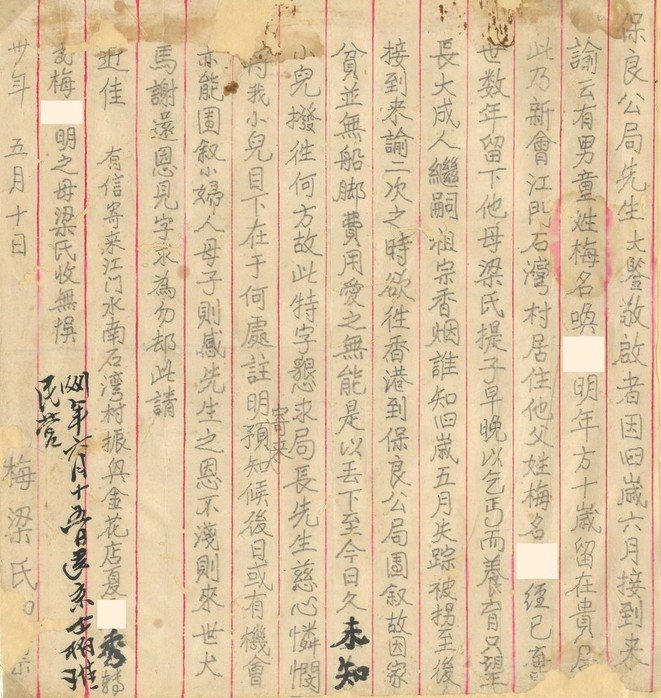 保良公局先生大鑒敬啟者因旧歲六月接到來
諭云有男童姓梅名喚 明年方十歲留在貴局
此乃新會江門石灣村居住他父姓梅名 經已棄
世数年留下他母梁氏提子早晚以乞丐而養育只望
長大成人繼嗣祖宗香烟誰知旧歲五月失踪被拐至後
接到來諭二次之時欲往香港到保良公局團叙故因家
貧並無船脚費用愛之無能是以丟下至今日久未知
小兒撥往何方故此特字懇求局長先生慈心憐憫
我小兒目下在于何處註明寄來預知候後日或有機會
亦能團叙小婦人母子則感先生之恩不淺則來世犬
馬謝還恩見字求為勿却此請
近佳 有信寄來江門水南石灣村振興金花店夏 秀轉
梅 明之母梁氏收無悮
卅年 五月十日 梅梁氏
年六月十五日